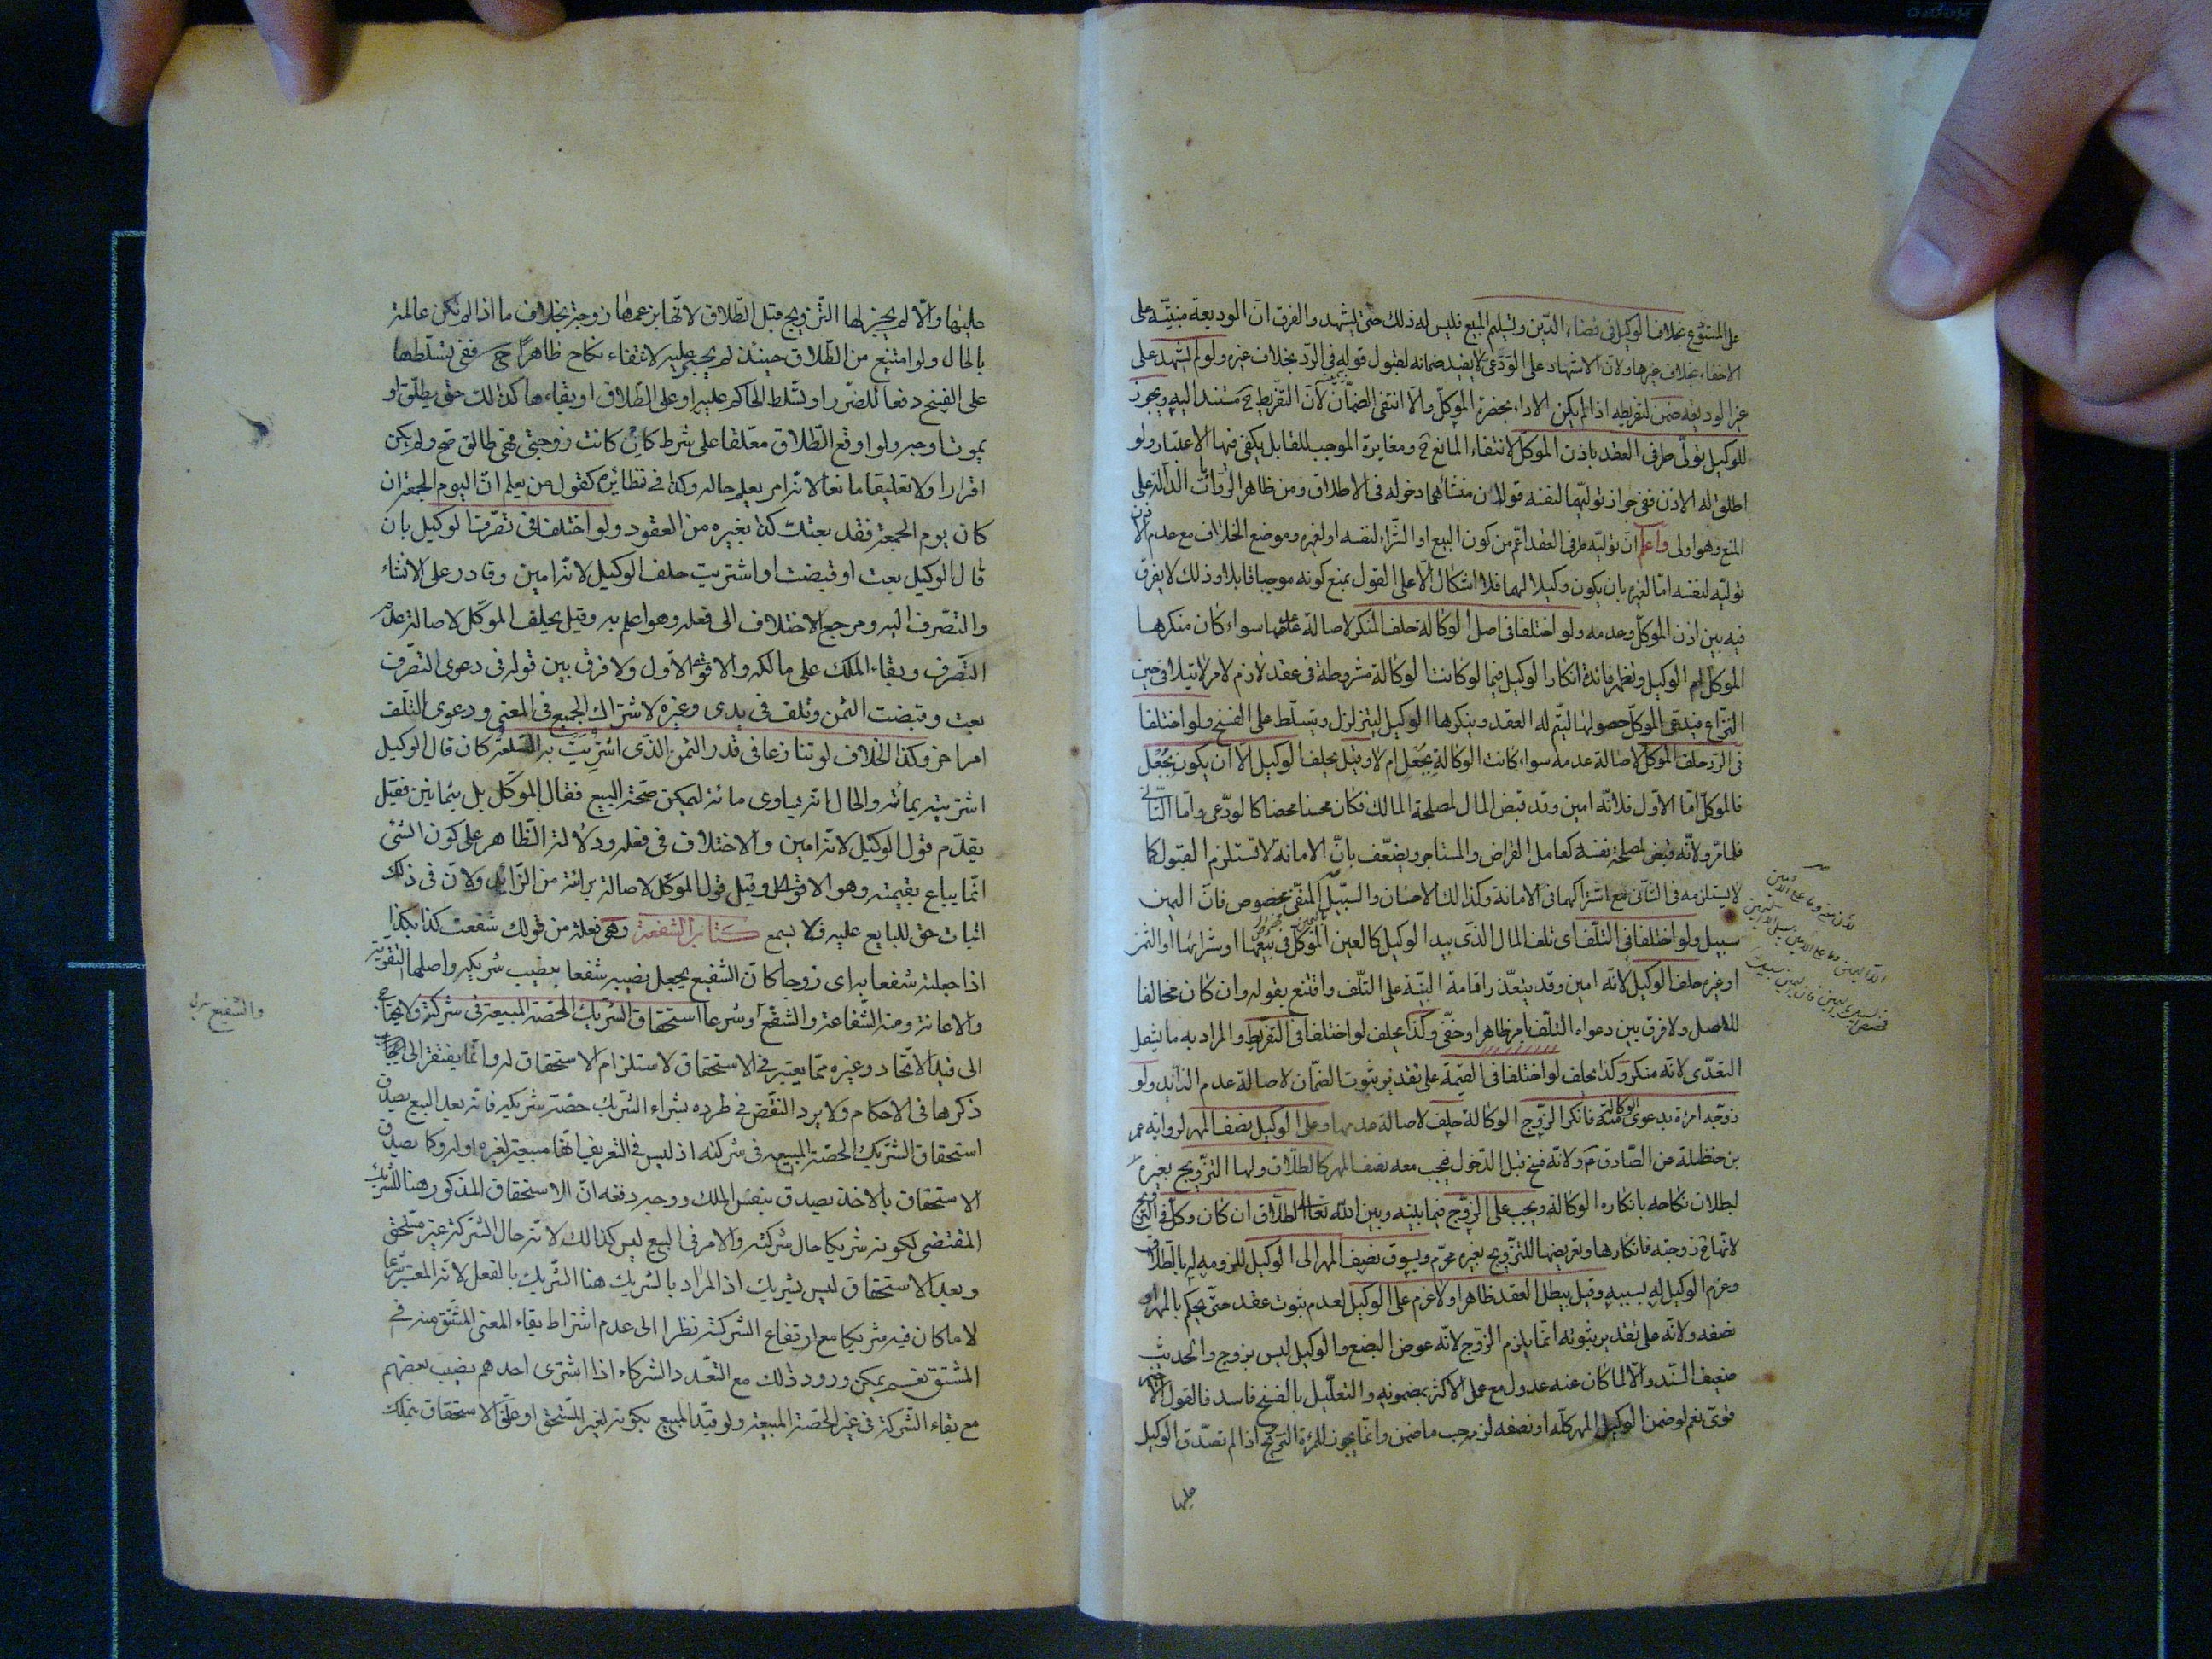 على المستودع بخلاف الوكيل في قضاء الدّين وتسليم المبيع فليس له ذلك حتى يشهد والفرق ان الوديعة مبنيّة على
الاخفاء بخلاف غيرها ولان الاشهاد على الودعى لا يفيد ضمانه لقبول قوله في الردّ بخلاف غيره ولو لم يشهد على
غير الوديعة ضمن لتفريطه اذا لم يكن الاداء بحضرة الموكلّ والّا انتفى الضمان لأنّ التفريط ح مستند اليه ويجوز
للوكيل تولّى طرفى العقد باذن الموكل لانتفاء المانع ح ومغايرة الموجب للقابل يكفى فيها الاعتبار ولو
اطلق له الاذن ففى جواز توليهما لنفسه قولان منشأهما دخوله فى الاطلاق ومن ظاهر الروايات الدالّة على
المنع وهو اولى واعلم انّ توليّه طرفى العقد اعّم من كون البيع او الشّراء لنفسه او لغيره وموضع الخلاف مع عدم الاذن
توليه لنفسه امّا لغيره بان يكون وكيلا لهما فلا اشكال الّا على القول بمنع كونه موجبا قابلا وذلك لا يفرق
فيه بين اذن الموكلّ وعدمه ولو اختلفا فى اصل الوكالة حلف المنكر لاصالة عدمها سواء كان منكرها
الموكلّ ام الوكيل وتظهر فائدة انكار الوكيل فيما لو كانت الوكالة مشروطة فى عقد لازم لامر لا يتلافى حين
النّزاع فيدّعى الموكلّ حصولها ليتّم له العقد وينكرها الوكيل ليتزلزل ويتسلّط على الفسخ ولو اختلفا
فى الردّ حلف الموكلّ لاصالة عدمه سواء كانت الوكالة بجعل ام لا وقيل يحلف الوكيل الا ان يكون بجُعْل
فالموكلّ امّا الاوّل فلانّه امين وقد قبض المال لمصلحة المالك فكان محسنا محضا كالودعى وامّا الثّانى
فلما مرّ ولانّه قبض لمصلحة نفسه كعامل القراض والمستاجر ويضعّف بانّ الامانة لا تستلزم القبول كما
لا يستلزمه فى الثّانى مع اشتراكهما فى الامانة وكذلك الاحسان والسّبيل المنفّى مخصوص فانّ اليمين
سبيل ولو اختلفا فى التلّف اى تلف المال الذّى بيد الوكيل كالعين الموكّل فى بيعها او شرائها او الثمن
او غيره حلف الوكيل لانّه امين وقد يتعذّر اقامة البيّنة على التلّف واقتنع بقوله وان كان مخالفا
للاصل ولا فرق بين دعواه التلّف بامر ظاهر او خفّى وكذا يحلف لو اختلفا فى التفّريط والمراد به ما يشمل
التعدّى لانّه منكر وكذا يحلف لو اختلفا فى القيمّة على تقدير ثبوت الضمّان لاصالة عدم الزّايد ولو
زوّجه امرءة بدعوى الوكالة منه فانكر الزوّج الوكالة حلف لاصالة عدمها وعلى الوكيل نصف المهر لرواية عمر
بن حنظلة عن الصّادق م ولانّه فسخ قبل الدّخول فيجب معه نصف المهر كالطلّاق ولها التزّويج بغيره
لبطلان نكاحه بانكاره الوكالة ويجب على الزوّج فيما بينه وبين اللّه تعالى الطلّاق ان كان وكلّ فى التزويج
لانّها ح زوجته فانكارها وتعريضها للتزّويج بغيره محرّم ويسوق نصف المهر الى الوكيل للزومه له بالطّلاق
وغرم الوكيل له بسببه وقيل يبطل العقد ظاهرا ولا غرم على الوكيل لعدم ثبوت عقد حتّى يحكم بالمهر او
نصفه ولانّه على تقدير ثبوته انّما يلزم الزوّج لانّه عوض البضع والوكيل ليس بزوج والحديث
ضعيف السّند والّا لما كان عنه عدول مع عمل الاكثر بمضمونه والتعلّيل بالفسخ فاسد فالقول الأخير
قوىّ نعم لو ضمن الوكيل المهر كلّه او نصفه لزمه حسب ما ضمن وانّما يجوز للمرءة التّزويج اذا لم تصدّق الوكيل
عليها
عليها والّا لم يجز لها التّزويج قبل الطّلاق لانّها بزعمها زوجة بخلاف ما اذا لم تكن عالمة
بالحال ولو امتنع من الطّلاق حينئذ لم يجبر عليه لانتفاء نكاح ظاهرًا ح ففى تسلّطها
على الفسخ دفعا للضّرر او تسّلط الحاكم عليه او على الطّلاق او بقاءها كذلك حتّى يطلّق او
يموت اوجه ولو اوقع الطّلاق معلقا على شرط كان كانت زوجتى فهى طالق صح ولم يكن
اقرارا ولا تعليقا مانعا لانّه امر يعلم حاله وكذا فى نظائره كقول من يعلم انّ اليوم الجمعة ان
كان يوم الجمعة فقد بعتك كذا بغيره من العقود ولو اختلفا فى تصّرف الوكيل بان
قال الوكيل بعت او قبضت او اشتريت حلف الوكيل لانّه امين وقادر على الانشاء
والتصّرف اليه ومرجع الاختلاف الى فعله وهو اعلم به وقيل يحلف الموكّل لاصالة عدم
التصّرف وبقاء الملك على مالكه والاقوى الاوّل ولا فرق بين قوله فى دعوى التصّرف
بعت وقبضت الثمن وتلف فى يدى وغيره لاشتراك الجميع فى المعنى ودعوى التلّف
امر اخر وكذا الخلاف لو تنازعا فى قدر الثمن الذّى اشتريت به السّلعة كان قال الوكيل
اشتريته بمائة والحال انّه يساوى مائة ليمكن صحّة البيع فقال الموكّل بل بثمانين فقيل
يقدّم قول الوكيل لانّه امين والاختلاف فى فعله ودلالة الظّاهر على كون الشئ
انّما يباع بقيمته وهو الاقوى وقيل قول الموكّل لاصالة برائته من الزّايد ولانّ فى ذلك
اثبات حق للبايع عليه فلا يسمع كتاب الشفعة وهى فعلة من قولك شفعت كذا بكذا
اذا جعلته شفعا به اى زوجا كانّ الشفيع يجعل نصيبه شفعا بنصيب شريكه واصلها التقوية
والاعانة ومنه الشّفاعة والشفع وشرعا استحقاق الشّريك الحصّة المبيعة فى شركته ولا يحتاج
الى قيد الاتّحاد وغيره ممّا يعتبر فى الاستحقاق لاستلزام الاستحقاق له وانّما يفتقر الى
ذكرها فى الاحكام ولا يرد النقّض فى طرده بشراء الشّريك حصّة شريكه فانّه بعد البيع يصدق
استحقاق الشّريك الحصّة المبيعة فى شركته اذ ليس فى التعريف انّها مبيعة لغيره او له وكما يصدق
الاستحقاق بالاخذ يصدق بنفس الملك ووجه دفعه انّ الاستحقاق المذكور هنا للشّريك
المقتضى لكونه شريكا حال شركته والامر فى البيع ليس كذلك لانّه حال الشّركة غير مستّحق
وبعد الاستحقاق ليس بشريك اذ المراد بالشريك هنا الشّريك بالفعل لانّه المعتبر شرعا
لا ما كان فيه شريكا مع ارتفاع الشركة نظرا الى عدم اشتراط بقاء المعنى المشتّق منه فى
المشتق نعم يمكن ورود ذلك مع التعّدد الشركاء اذا اشترى احدهم نصيب بعضهم
مع بقاء الشّركة فى غير الحصّة المبيعة ولو قيّد المبيع بكونه لغير المسّتحق او علّق الاستحقاق بتملّك
والشفيع